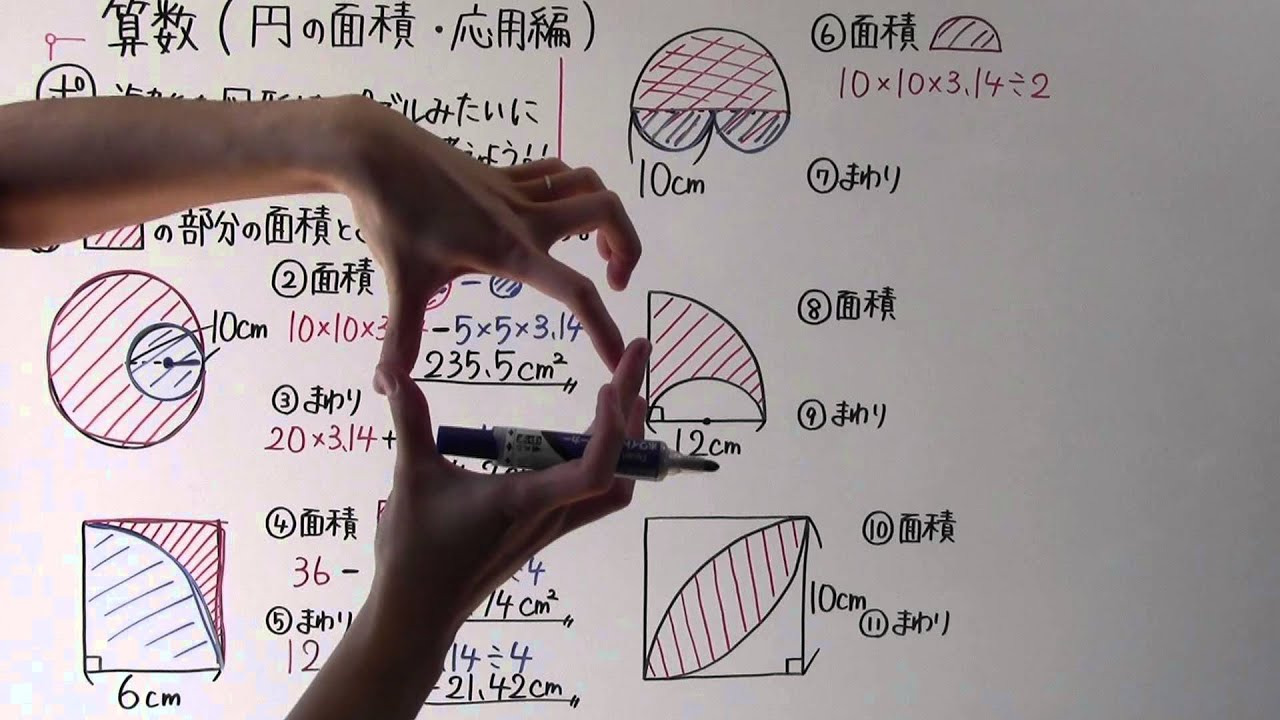 算数(円の面積・応用編)
ポ
図形は
ルみたいに
の部分の面積と
10cm
②面積
10×10×3
-5×5×3.14
235.5cm²
③まわり
20×3.14+
④面積
36-
÷4
14cm²
⑤まわり
12
14÷4
21.42cm
6cm
10cm
⑥面積
10×10×3.14÷2
⑦まわり
12cm
⑧面積
⑨まわり
10cm
⑩面積
⑪まわり